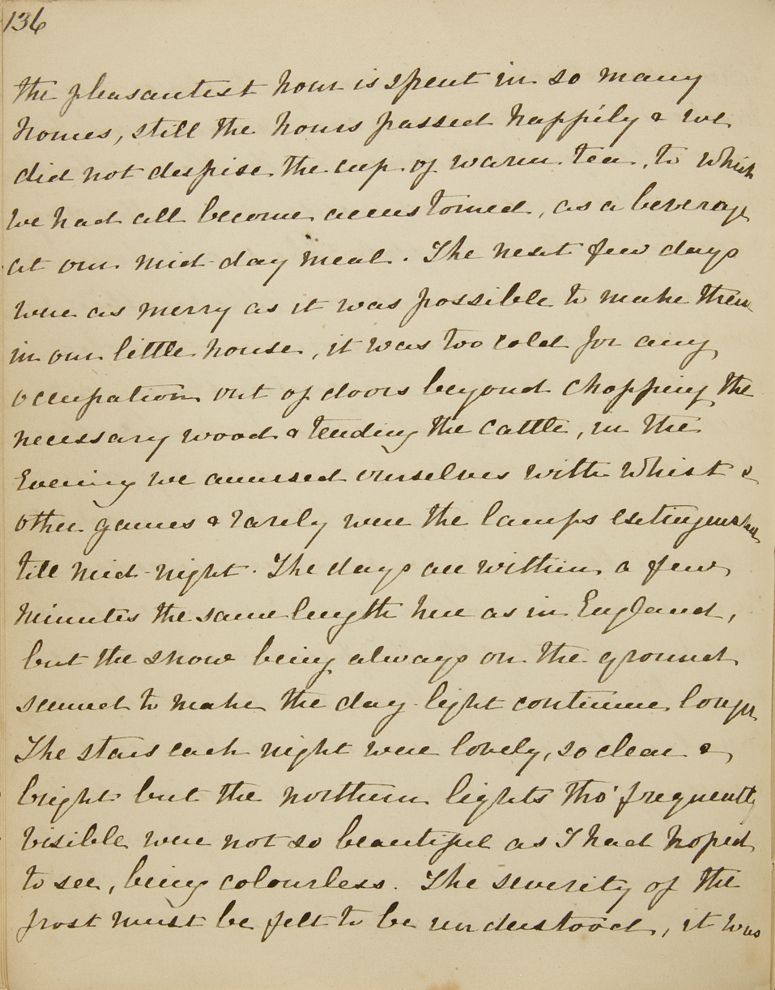 136
the pleasantest hour is spent in so many
homes, still the hours passed happily & we
did not despise the cup of warm tea, to which
we had all become accustomed, as a beverage
at our mid-day meal. The next few days
were as merry as it was possible to make them
in our little house, it was too cold for any
occupation out of doors beyond chopping the
necessary wood & tending the cattle, in the
Evening we amused ourselves with Whist &
other games & rarely were the lamps extinguished
till mid-night. The days are within a few
minutes the same length here as in England,
but the snow being always on the ground
seemed to make the day-light continue longer
The stars each night were lovely, so clear &
bright but the northern lights tho' frequently
visible were not so beautiful as I had hoped
to see, being colourless. The severity of the
frost must be felt to be understood, it was